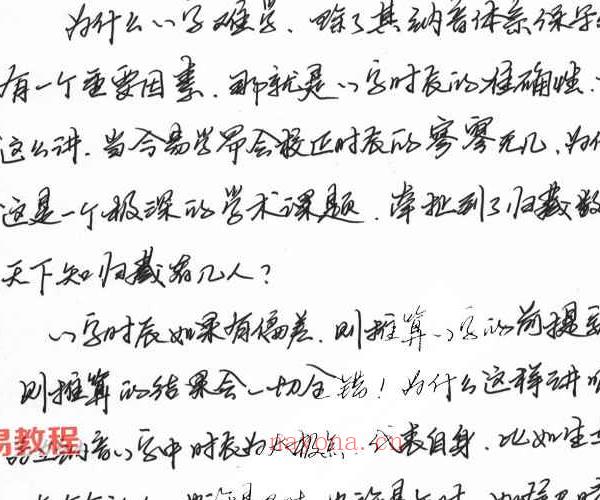 为什么八字难学，除了其纳音体系保守
有一个重要因素，那就是八字时辰的准确性，
这么讲，当今易学界会校正时辰的寥寥无几，为什
这是一个极深的学术课题，牵扯到了归藏数
天下知归藏有几人？
八字时辰如果有偏差，则推算八字的前提
则推算的结果会一切全错！为什么这样讲
纳音八字中时辰为 极点 代表自身，比如生
易教程